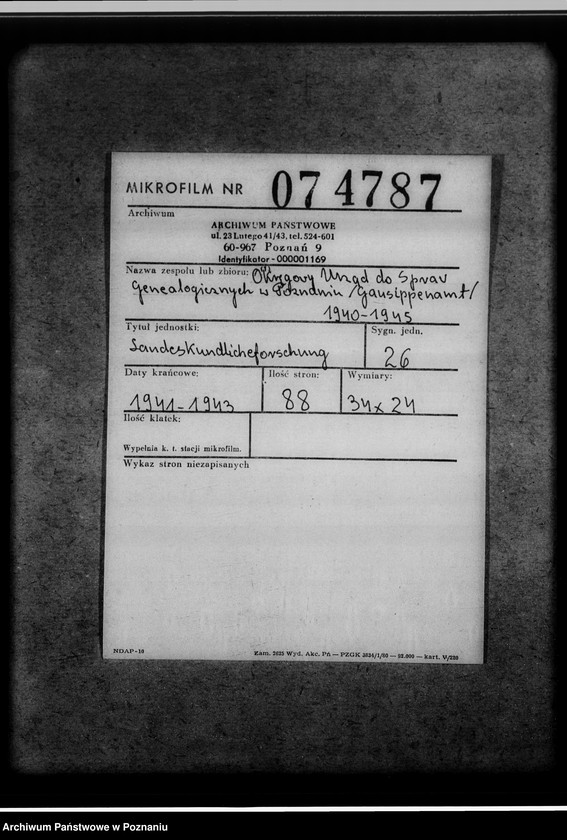 MIKROFILM NR 074787
Archiwum
ARCHIWUM PAŃSTWOWE
ul. 23 Lutego 41/43, tel. 524-601
60-967 Poznań 9
Identyfikator - 000001169
Nazwa zespołu lub zbioru: Okręgowy Urząd do Spraw
Genealogicznych w Poznaniu /Gausippenamt/
1940-1945
Tytuł jednostki: Sygn. jedn.
Landeskundlicheforschung 26
Daty krańcowe: Ilość stron: Wymiary:
1941-1943 88 34x24
Ilość klatek:
Wypełnia k. t. stacji mikrofilm.
Wykaz stron niezapisanych
NDAP-10 Zam. 2625 Wyd. Akc. Pń — PZGK 2034/1/80 — 92.000 — kart. V/230
Archiwum Państwowe w Poznaniu